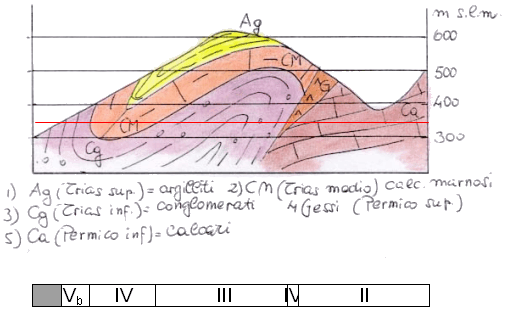 m s.l.m.
Ag
600
CM
500
G
400
Ca
CM
300
Cg
1) Ag (Trias sup.) = argilliti 2) CM (Trias medio) calc. marnosi
3) Cg (Trias inf.) = conglomerati 4 Gessi (Permico sup.)
5) Ca (Permico inf) = calcari
Vb IV III IV II